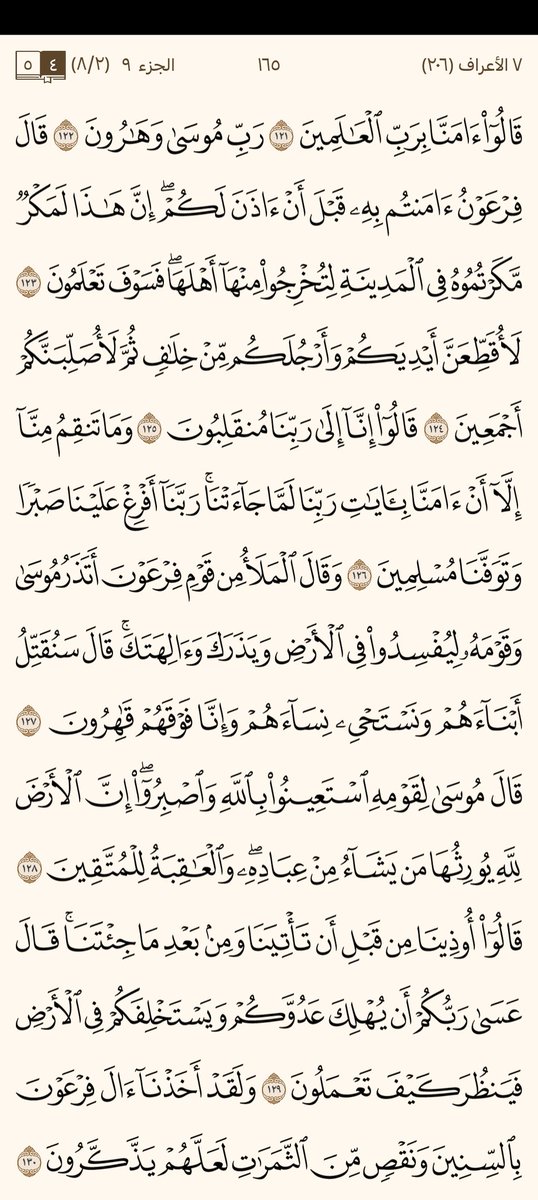 ٧ الأعراف (٢٠٦) ١٦٥ الجزء ٩ (٨/٢) ٤ ٥
قَالُوٓا۟ ءَامَنَّا بِرَبِّ ٱلْعَـٰلَمِينَ ١٢١ رَبِّ مُوسَىٰ وَهَـٰرُونَ ١٢٢ قَالَ
فِرْعَوْنُ ءَامَنتُم بِهِۦ قَبْلَ أَنْ ءَاذَنَ لَكُمْ ۖ إِنَّ هَـٰذَا لَمَكْرٌ
مَّكَرْتُمُوهُ فِى ٱلْمَدِينَةِ لِتُخْرِجُوا۟ مِنْهَآ أَهْلَهَا ۖ فَسَوْفَ تَعْلَمُونَ ١٢٣
لَأُقَطِّعَنَّ أَيْدِيَكُمْ وَأَرْجُلَكُم مِّنْ خِلَـٰفٍ ثُمَّ لَأُصَلِّبَنَّكُمْ
أَجْمَعِينَ ١٢٤ قَالُوٓا۟ إِنَّآ إِلَىٰ رَبِّنَا مُنقَلِبُونَ ١٢٥ وَمَا تَنقِمُ مِنَّآ
إِلَّآ أَنْ ءَامَنَّا بِـَٔايَـٰتِ رَبِّنَا لَمَّا جَآءَتْنَا ۚ رَبَّنَآ أَفْرِغْ عَلَيْنَا صَبْرًا
وَتَوَفَّنَا مُسْلِمِينَ ١٢٦ وَقَالَ ٱلْمَلَأُ مِن قَوْمِ فِرْعَوْنَ أَتَذَرُ مُوسَىٰ
وَقَوْمَهُۥ لِيُفْسِدُوا۟ فِى ٱلْأَرْضِ وَيَذَرَكَ وَءَالِهَتَكَ ۚ قَالَ سَنُقَتِّلُ
أَبْنَآءَهُمْ وَنَسْتَحْىِۦ نِسَآءَهُمْ وَإِنَّا فَوْقَهُمْ قَـٰهِرُونَ ١٢٧
قَالَ مُوسَىٰ لِقَوْمِهِ ٱسْتَعِينُوا۟ بِٱللَّهِ وَٱصْبِرُوٓا۟ ۖ إِنَّ ٱلْأَرْضَ
لِلَّهِ يُورِثُهَا مَن يَشَآءُ مِنْ عِبَادِهِۦ ۖ وَٱلْعَـٰقِبَةُ لِلْمُتَّقِينَ ١٢٨
قَالُوٓا۟ أُوذِينَا مِن قَبْلِ أَن تَأْتِيَنَا وَمِنۢ بَعْدِ مَا جِئْتَنَا ۚ قَالَ
عَسَىٰ رَبُّكُمْ أَن يُهْلِكَ عَدُوَّكُمْ وَيَسْتَخْلِفَكُمْ فِى ٱلْأَرْضِ
فَيَنظُرَ كَيْفَ تَعْمَلُونَ ١٢٩ وَلَقَدْ أَخَذْنَآ ءَالَ فِرْعَوْنَ
بِٱلسِّنِينَ وَنَقْصٍ مِّنَ ٱلثَّمَرَٰتِ لَعَلَّهُمْ يَذَّكَّرُونَ ١٣٠